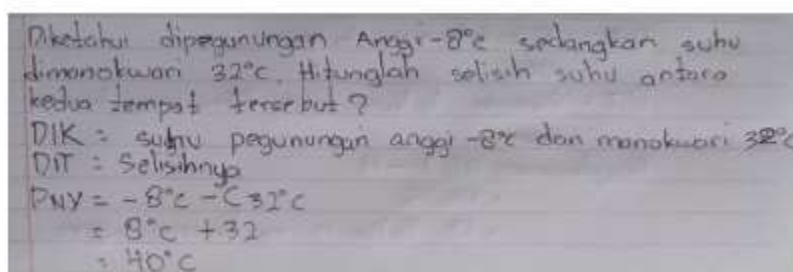 Diketahui dipegunungan Anggi -8°c sedangkan suhu
dimanokwari 32°c. Hitunglah selisih suhu antara
kedua tempat tersebut?
DIK : suhu pegunungan anggi -8°c dan manokwari 32°c
DIT : Selisihnya
PNY = -8°c - (32°c
= 8°c + 32
= 40°c